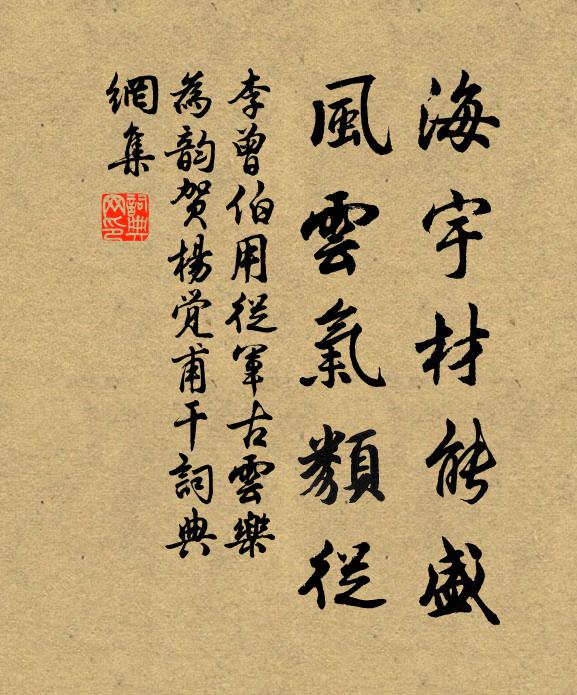 海宇材能盛
風雲氣類從
李曾伯用從軍古雲樂
為韵贺楊觉甫干詞典
網集
詞典网印